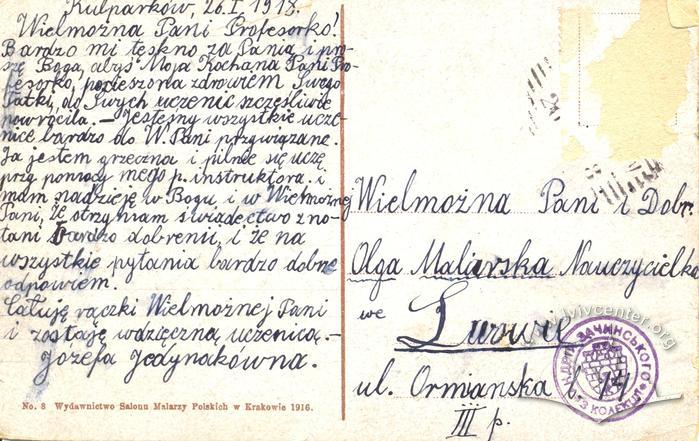 Kulparków, 26.I.1918.
Wielmożna Pani Profesorko!
Bardzo mi tęskno za Panią i pro-
szę Boga, abyś Moja Kochana Pani Pro-
fesorko, pocieszona zdrowiem Swego
Tatki, do Swych uczenic szczęśliwie
powróciła. – Jesteśmy wszystkie ucze-
nice bardzo do W. Pani przywiązane.
Ja jestem grzeczna i pilnie się uczę
przy pomocy mego p. instruktora i
mam nadzieję w Bogu i w Wielmożnej
Pani, że otrzymam świadectwo z no-
tami bardzo dobremi, i że na
wszystkie pytania bardzo dobrze
odpowiem.
Całuję rączki Wielmożnej Pani
i zostaję wdzięczną uczenicą.–
Józefa Jedynakówna.
No. 8 Wydawnictwo Salonu Malarzy Polskich w Krakowie 1916.
Wielmożna Pani i Dobr.
Olga Maliarska Nauczycielka
we
Lwowie
ul. Ormiańska 14
III p.
lvivcenter.org
ЗАЧИНСЬКОГО
З КОЛЕКЦІЇ